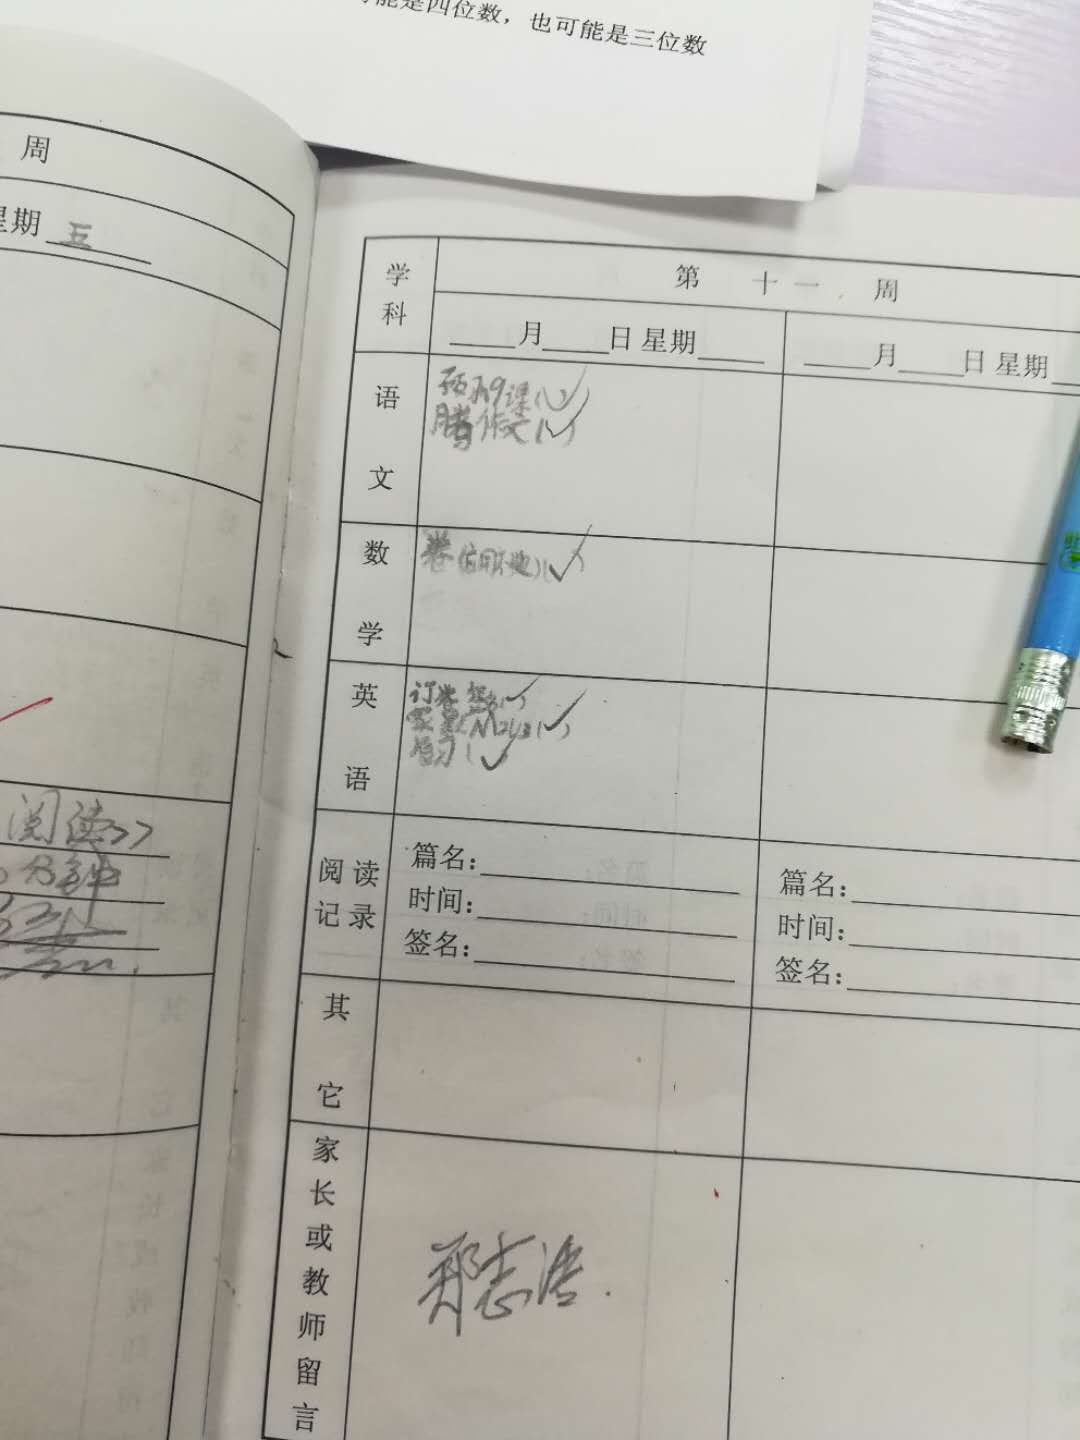 是四位数，也可能是三位数
周
星期 五
阅读>>
分钟
学科
第 十一 周
月 日 星期
月 日 星期
语文
预习9课(✓)
誊作文(✓)
数学
卷
英语
订卷 签名(✓)
复习(✓)
阅读记录
篇名：
时间：
签名：
篇名：
时间：
签名：
其它
家长或教师留言
郑志浩.